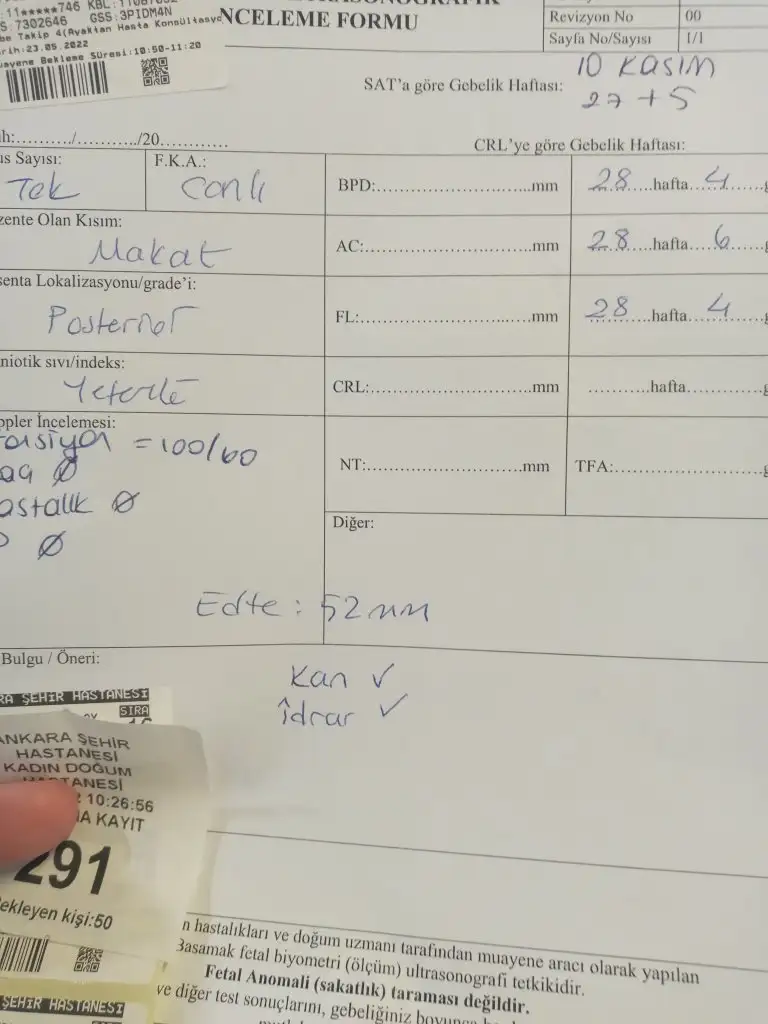 11*****746 KBL:
7302646 GSS:3PIDM4N
Takip 4(Ayaktan Hasta Konsültasyo
23.05.2022
Bekleme Süresi:10:50-11:20
NCELEME FORMU
Revizyon No 00
Sayfa No/Sayısı 1/1
SAT'a göre Gebelik Haftası: 10 Kasım
27+5
h:........./........../20............
CRL'ye göre Gebelik Haftası:
us Sayısı: F.K.A.:
Tek Canlı
BPD:..............................mm 28 hafta 4
zente Olan Kısım:
Makat
AC:..............................mm 28 hafta 6
senta Lokalizasyonu/grade'i:
Posterior
FL:..............................mm 28 hafta 4
niotik sıvı/indeks:
Yeterli
CRL:..............................mm ............hafta
ppler İncelemesi:
=100/60
Ø
astalık Ø
Ø
NT:..............................mm TFA:
Diğer:
Edte: 52 mm
Bulgu / Öneri:
Kan ✓
İdrar ✓
RA ŞEHİR HASTANESİ
SIRA
ANKARA ŞEHİR
HASTANESİ
KADIN DOĞUM
HASTANESİ
10:26:56
KAYIT
291
ekleyen kişi:50
ŞEHİR HASTANESİ
n hastalıkları ve doğum uzmanı tarafından muayene aracı olarak yapılan
Basamak fetal biyometri (ölçüm) ultrasonografi tetkikidir.
Fetal Anomali (sakatlık) taraması değildir.
ve diğer test sonuçlarını, gebeliğiniz boyunca